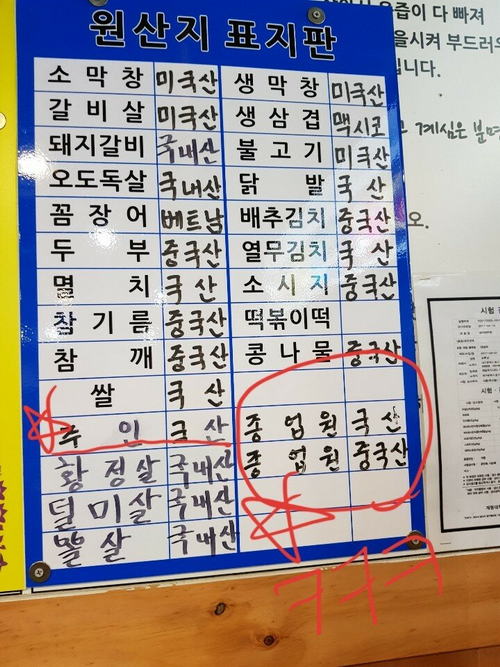 원산지 표지판
소막창 미국산 생막창 미국산
갈비살 미국산 생삼겹 멕시코
돼지갈비 국내산 불고기 미국산
오도독살 국내산 닭발 국산
꼼장어 베트남 배추김치 중국산
두부 중국산 열무김치 국산
멸치 국산 소시지 중국산
참기름 중국산 떡볶이떡
참깨 중국산 콩나물 중국산
쌀 국산
주인 국산 종업원 국산
황정살 국내산 종업원 중국산
덜미살 국내산
뽈살 국내산
ㅋㅋㅋ
다 빠져
을시켜 부드러우
니다.
계심은 분명
오.
시험